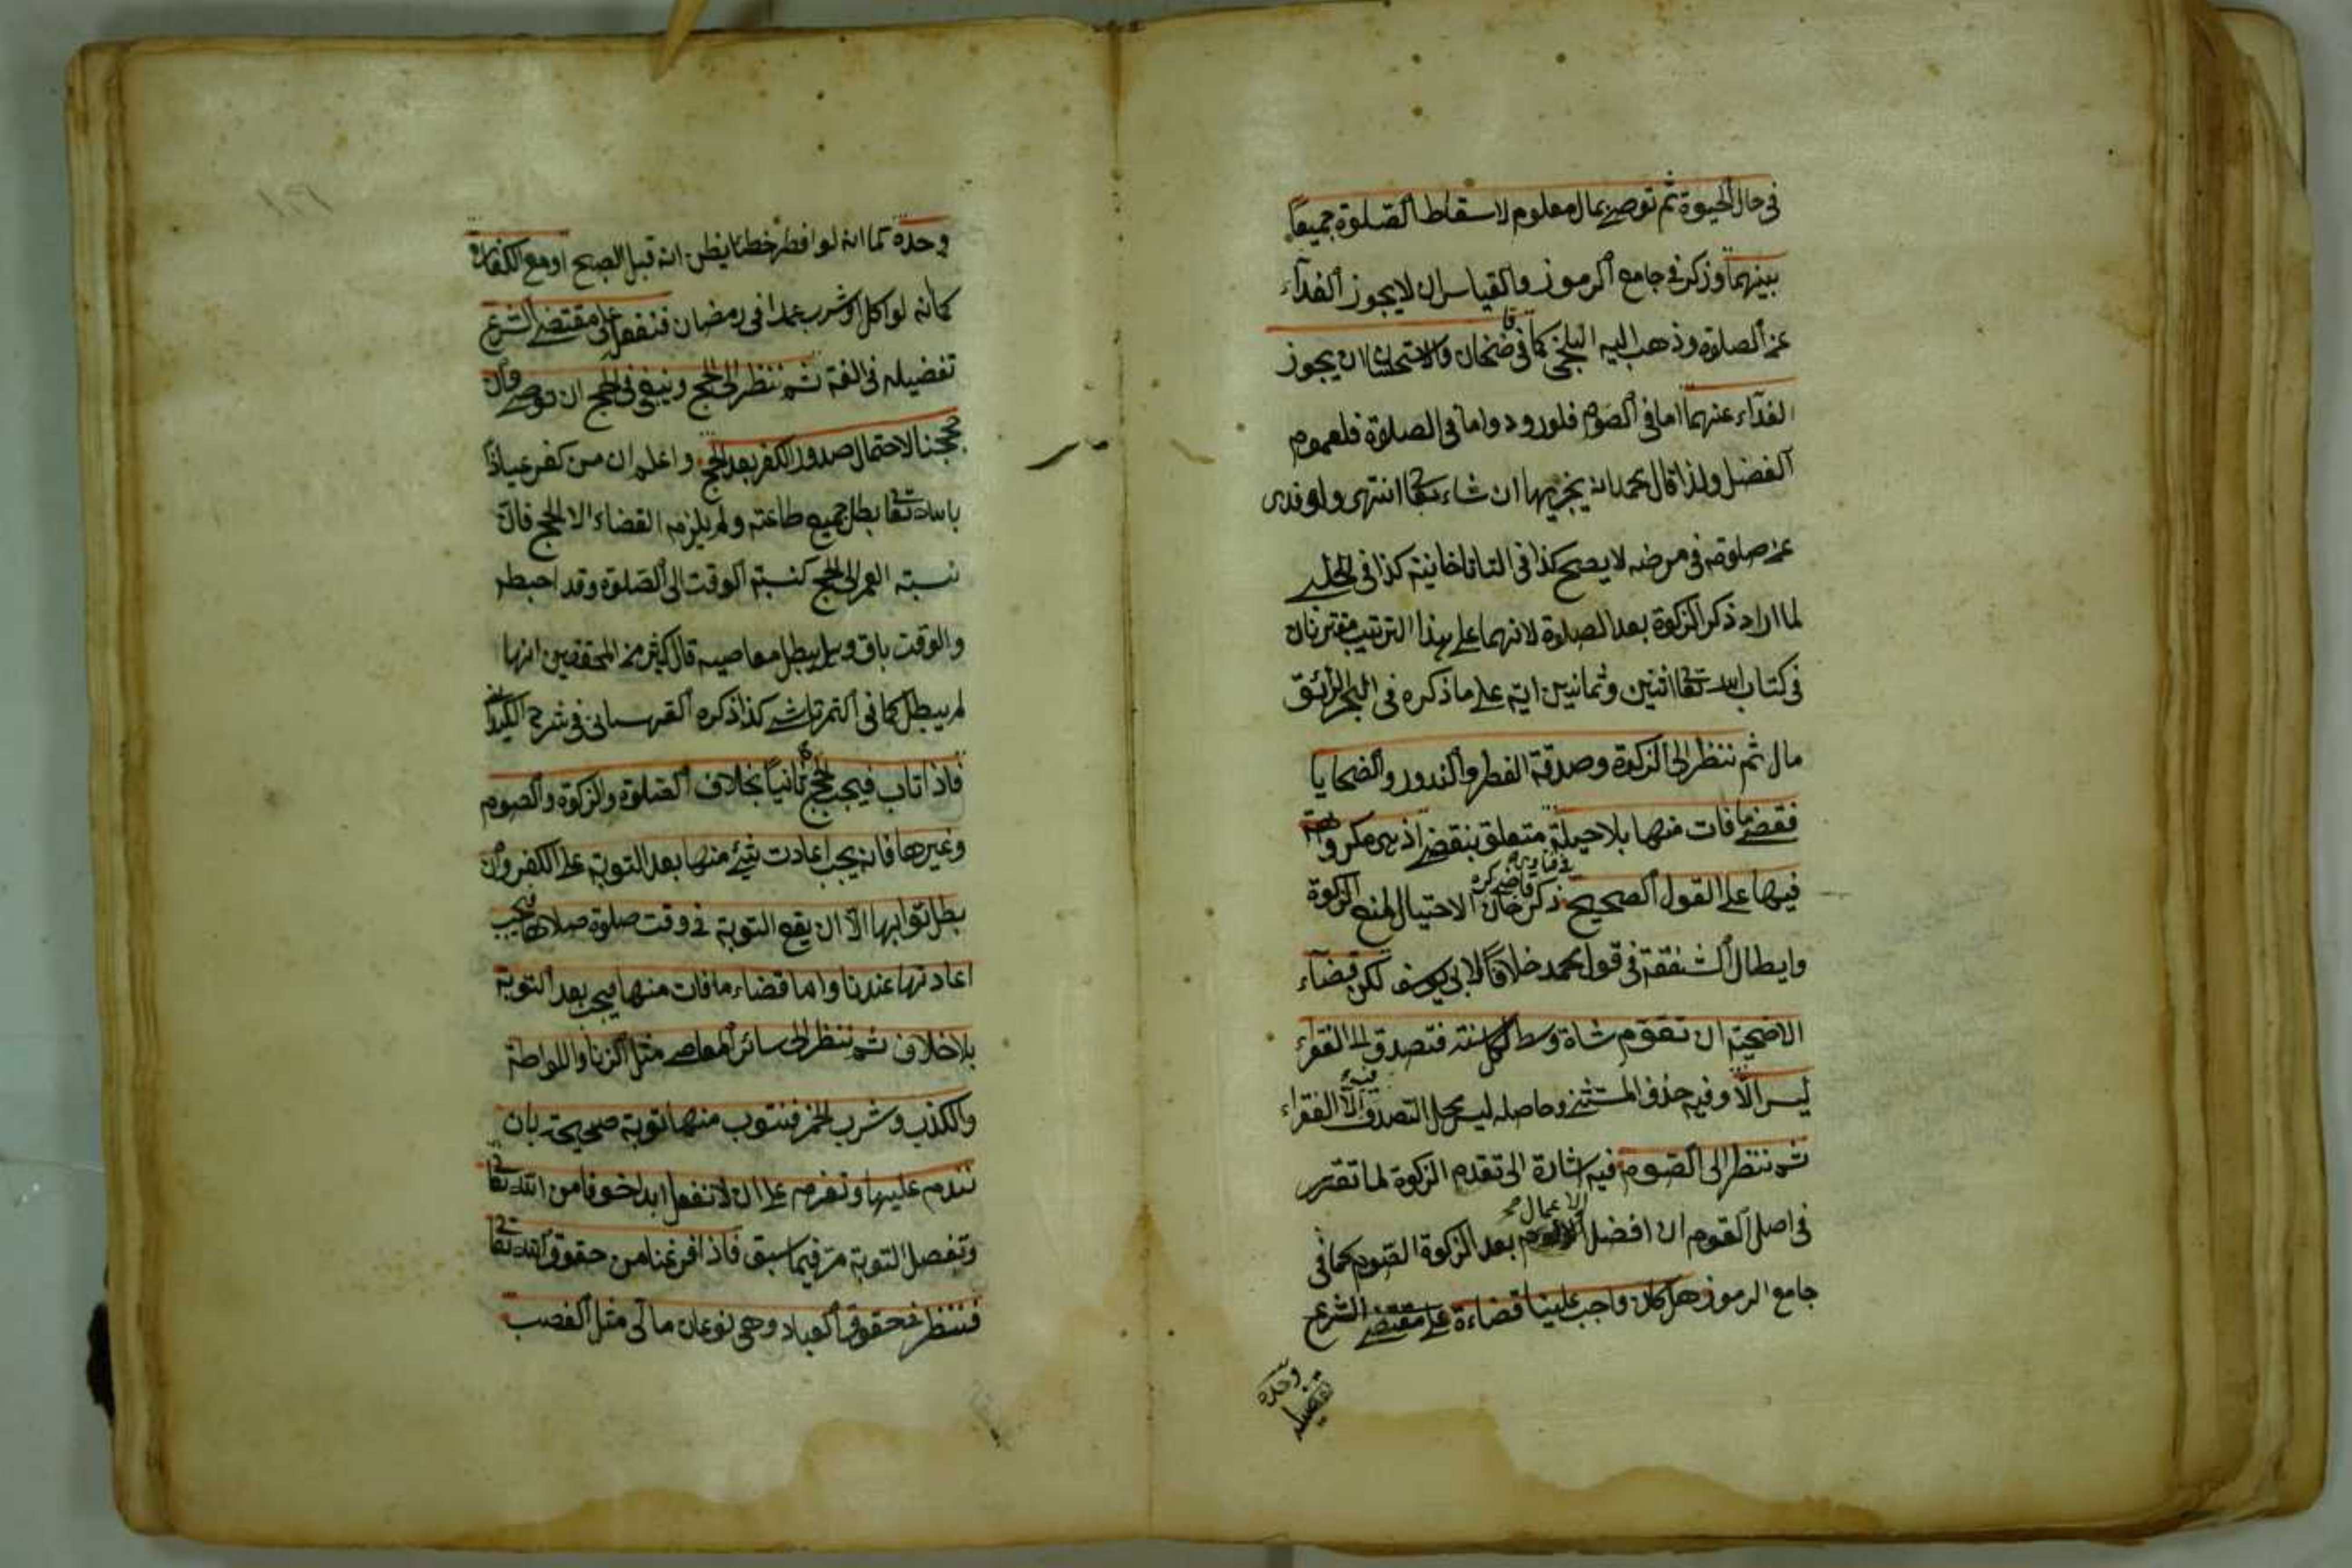 في حال الحيوة ثم توصى بمال معلوم لاسقاط الصلوة جميعا
بينهما وذكر في جامع الرموز والقياس ان لا يجوز الفداء
عن الصلوة وذهب اليه البلخي كما في قاضخان والاستحسان ان يجوز
الفداء عنهما اما في الصوم فلورود واما في الصلوة فلعموم
الفضل ولذا قال محمد انه يجزيها ان شاء تعا انتهى ولو فدى
عن صلوته في مرضه لا يصح كذا في التاتاخانية كذا في الحلبي
لما اراد ذكر الزكوة بعد الصلوة لانهما على هذا الترتيب مقترنان
في كتاب الله تعا اثنين وثمانين اية على ما ذكره في البحر الرائق
مال ثم ننظر الى الزكوة وصدقة الفطر والنذور والضحايا
فنقضي ما فات منها بلا حيلة متعلق بنقضي اذ هي مكروهة
فيها على القول الصحيح ذكر قاضي خان في فتاويه كره الاحتيال لمنع الزكوة
وابطال الشفقة في قول محمد خلافا لابي يوسف لكن قضاء
الاضحية ان تقوم شاة وسط لكل سنة فتصدق الى الفقراء
ليس الا وفيه حذف المستثنى وحاصله ليس محل التصدق فيه الا الفقراء
ثم ننظر الى الصوم فيه اشارة الى تقدم الزكوة لما تقرر
في اصل القوم ان افضل الاعمال بعد الزكوة الصوم كما في
جامع الرموز هل كان واجب علينا قضاءة على مقتضى الشرع
وحده
تفصيله
وحدة كما انه لو افطر خطئا يظن انه قبل الصبح او مع الكفارة
كما انه لو اكل او شرب عمدا في رمضان فنفعل على مقتضى الشرع
تفضيله في الفقه ثم ننظر الى الحج وينبغي في الحج ان نوصي وان
حججنا لاحتمال صدور الكفر بعد الحج واعلم ان من كفر عياذا
بالله تعا بطل جميع طاعته ولم يلزمه القضاء الا الحج فان
نسبة العمر الى الحج كنسبة الوقت الى الصلوة وقد احبطه
والوقت باق وهل يبطل معاصيه قال كثير من المحققين انها
لم يبطل كما في التمرتاشي كذا ذكره القهستاني في شرح الكيداني
فاذا تاب فيجب الحج ثانيا بخلاف الصلوة والزكوة والصوم
وغيرها فانه يجب اعادت شيئ منها بعد التوبة على الكفر وان
بطل ثوابها الا ان يقع التوبة في وقت صلوة صلاها فيجب
اعادتها عندنا واما قضاء ما فات منها فيجب بعد التوبة
بلا خلاف ثم ننظر الى سائر المعاصي مثل الزنا واللواطة
والكذب وشرب الخمر فنتوب منها توبة صحيحة بان
نندم عليها ونعزم على ان لا نفعل ابدا خوفا من الله تعا
وتفصل التوبة مر فيما سبق فاذا فرغنا من حقوق الله تعا
فننظر في حقوق العباد وهي نوعان مالي مثل الغصب